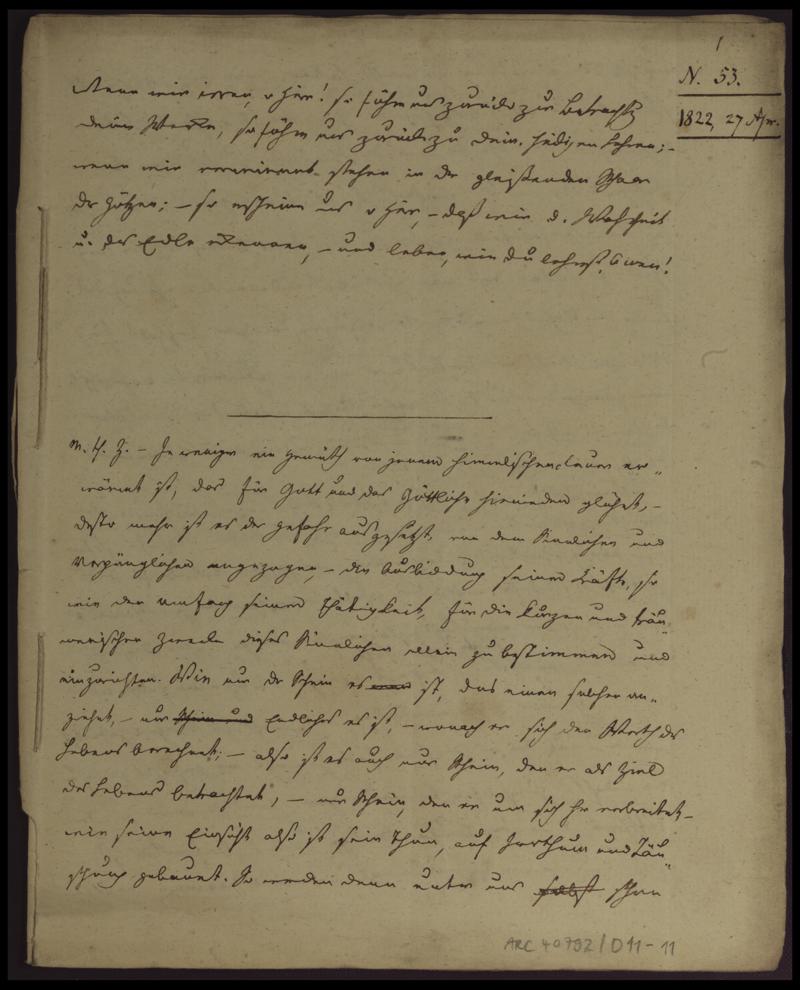 1
N. 53.
1822, 27 Apr.
Wenn wir irren, o Herr! so führe uns zurück zur Betrachtg
deiner Werke, so führe uns zurück zu dein. heiligen Lehren; –
wenn wir verwirrt stehen in der gleißenden Schaar
der Götzen; – so erscheine uns o Herr, – daß wir d. Wahrheit
u. das Edle erkennen, – und leben, wie du lehrest, Amen!
M. th. Z. – Je weniger ein Gemüth von jenem himmlischen er„
wärmt ist, das für Gott und das Göttliche hienieden glühet, –
desto mehr ist es der Gefahr ausgesetzt, von dem Sinnlichen und
Vergänglichen angezogen, – die Ausbildung seiner Kräfte, so
wie den Umfang seiner Thätigkeit, für die kurzen und träu„
merischen Zwecke dieses Sinnlichen allein zu bestimmen und
einzurichten. Wie nur der Schein es ist, das einen solchen an„
ziehet, – nur Endliches es ist, – wonach er sich den Werth des
Lebens berechnet; – also ist es auch nur Schein, den er als Ziel
des Lebens betrachtet, – nur Schein, den er um sich her verbreitet –
wie seine Einsicht also ist sein Thun, auf Irrthum und Täu„
schung gebauet. So werden denn unter uns selbst schon
ARC 40792/D11-11